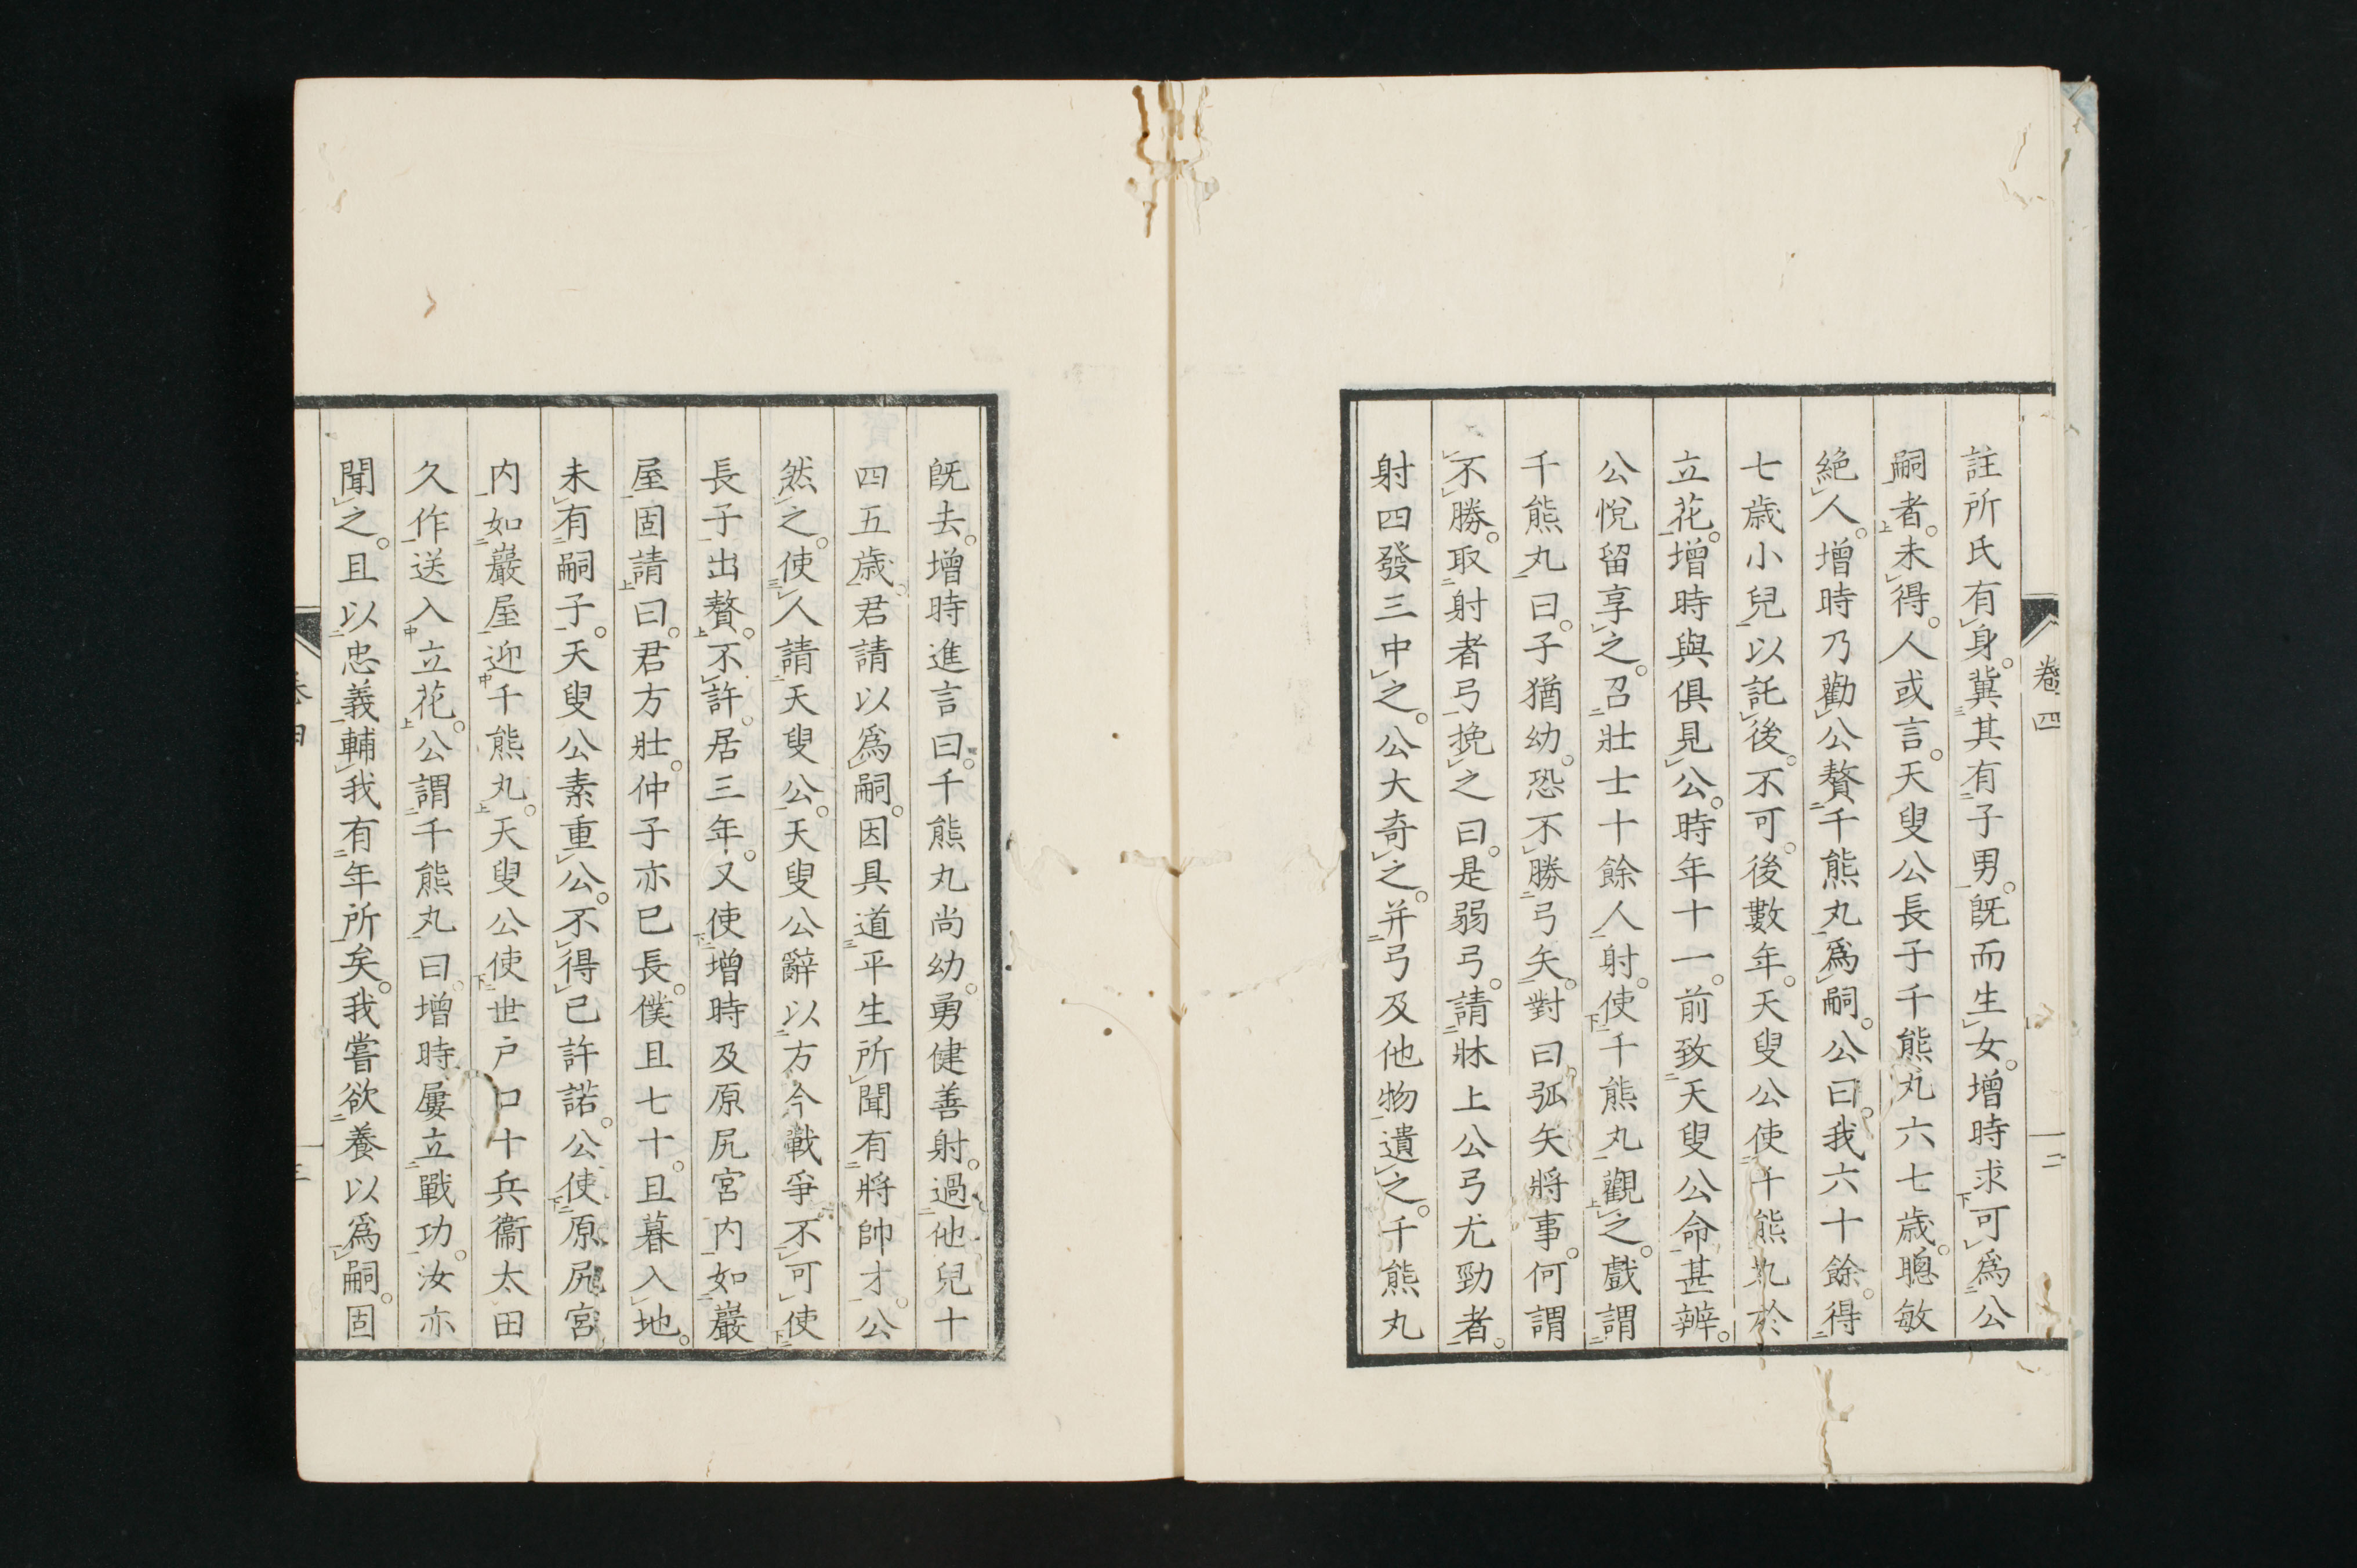 卷四
二
註所氏有身。冀其有子男。旣而生女。增時求可爲公
嗣者。未得。人或言。天叟公長子千熊丸六七歲。聰敏
絕人。增時乃勸公贅千熊丸爲嗣。公曰。我六十餘。得
七歲小兒以託後。不可。後數年。天叟公使千熊丸於
立花。增時與俱見公。時年十一。前致天叟公命甚辨。
公悅留享之。召壯士十餘人射。使千熊丸觀之。戲謂
千熊丸曰。子猶幼。恐不勝弓矢。對曰。弧矢將事。何謂
不勝。取射者弓挽之曰。是弱弓。請牀上公弓尤勁者。
射四發三中之。公大奇之。并弓及他物遺之。千熊丸
旣去。增時進言曰。千熊丸尚幼。勇健善射。過他兒十
四五歲。君請以爲嗣。因具道平生所聞有將帥才。公
然之。使人請天叟公。天叟公辭以方今戰爭不可使
長子出贅。不許。居三年。又使增時及原尻宮內如巖
屋固請曰。君方壯。仲子亦已長。僕且七十。且暮入地。
未有嗣子。天叟公素重公。不得已許諾。公使原尻宮
內如巖屋迎千熊丸。天叟公使世戶口十兵衞太田
久作送入立花。公謂千熊丸曰。增時屢立戰功。汝亦
聞之。且以忠義輔我有年所矣。我嘗欲養以爲嗣。固